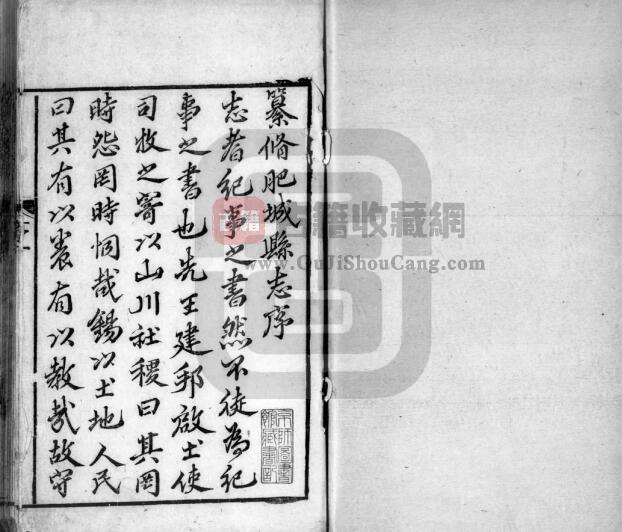 纂脩肥城縣志序
志者紀事之書然不徒為紀
事之書也先王建邦啟土使
司牧之寄以山川社稷曰其罔
時怨罔時恫哉錫以土地人民
曰其有以養有以教哉故守
古籍
古籍收藏網
www.GuJiShouCang.com
京師圖書
館藏書記